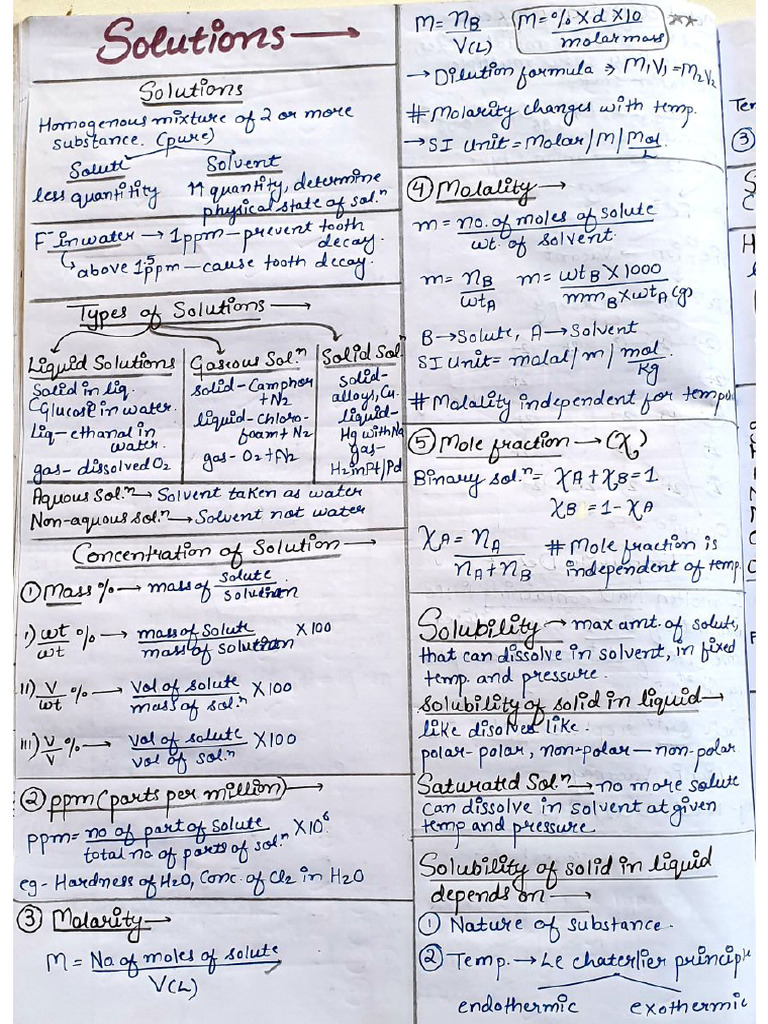 Solutions →
Solutions
Homogenous mixture of 2 or more
substance. (pure)
Solute
less quantity
Solvent
↑↑ quantity, determine
physical state of sol.ⁿ
F⁻ in water → 1ppm – prevent tooth
decay.
↳ above 1.5 ppm – cause tooth decay.
Types of Solutions →
Liquid Solutions
Solid in liq.
Glucose in water.
Liq – ethanal in
water.
gas – dissolved O2
Gaseous Sol.ⁿ
solid – Camphor
+ N2
liquid – chloro-
foam + N2
gas – O2 + N2
Solid Sol.ⁿ
Solid-
alloys, Cu.
liquid-
Hg with Na
gas-
H2 in Pt/Pd
Aqueous Sol.ⁿ → Solvent taken as water
Non-aqous Sol.ⁿ → Solvent not water
Concentration of Solution →
① Mass % → mass of solute / solution
i) wt/wt % → mass of solute / mass of solution X 100
ii) V/wt % → Vol of solute / mass of sol.ⁿ X 100
iii) V/V % → Vol of solute / vol of sol.ⁿ X 100
② ppm (parts per million) →
ppm = no of part of solute / total no of parts of sol.ⁿ X 10⁶
eg - Hardness of H2O, Conc. of Cl2 in H2O
③ Molarity →
M = No. of moles of solute / V(L)
M = nB / V(L) M = % X d X 10 / molar mass **
→ Dilution formula ⇒ M1V1 = M2V2
# Molarity changes with temp.
→ SI Unit = Molar / M / Mol/L
④ Molality →
m = no. of moles of solute / wt. of solvent
m = nB / wtA m = wtB X 1000 / mmB X wtA (g)
B → Solute, A → Solvent
SI Unit = molal / m / mol/kg
# Molality independent for temp
⑤ Mole fraction → (χ)
Binary sol.ⁿ = χA + χB = 1
χB = 1 - χA
χA = nA / nA + nB
# Mole fraction is
independent of temp.
Solubility → max amt. of solute,
that can dissolve in solvent, in fixed
temp. and pressure.
Solubility of solid in liquid →
like disolves like.
polar – polar, non-polar — non-polar
Saturated Sol.ⁿ → no more solute
can dissolve in solvent at given
temp and pressure.
Solubility of solid in liquid
depends on →
① Nature of substance.
② Temp. → Le chaterlier principle
endothermic exothermic
Ter
③